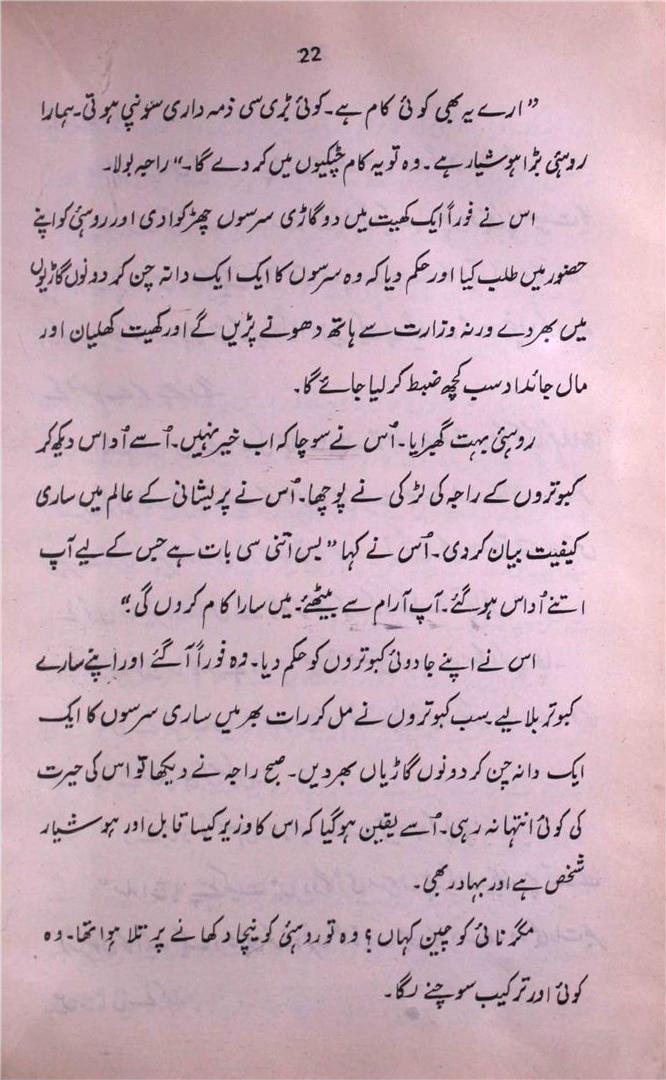 22
”ارے یہ بھی کوئی کام ہے۔ کوئی بڑی سی ذمہ داری سونپی ہوتی۔ ہمارا
روہنی بڑا ہوشیار ہے۔ وہ تو یہ کام چٹکیوں میں کر دے گا۔“ راجہ بولا۔
اس نے فوراً ایک کھیت میں دو گاڑی سرسوں چھڑکوا دی اور روہنی کو اپنے
حضور میں طلب کیا اور حکم دیا کہ وہ سرسوں کا ایک ایک دانہ چن کر دونوں گاڑیوں
میں بھر دے ورنہ وزارت سے ہاتھ دھونے پڑیں گے اور کھیت کھلیان اور
مال جائداد سب کچھ ضبط کر لیا جائے گا۔
روہنی بہت گھبرایا۔ اُس نے سوچا کہ اب خیر نہیں۔ اُسے اُداس دیکھ کر
کبوتروں کے راجہ کی لڑکی نے پوچھا۔ اُس نے پریشانی کے عالم میں ساری
کیفیت بیان کر دی۔ اُس نے کہا ”بس اتنی سی بات ہے جس کے لیے آپ
اتنے اُداس ہو گئے۔ آپ آرام سے بیٹھئے۔ میں سارا کام کروں گی۔“
اس نے اپنے جادوئی کبوتروں کو حکم دیا۔ وہ فوراً آ گئے اور اپنے سارے
کبوتر بلا لیے۔ سب کبوتروں نے مل کر رات بھر میں ساری سرسوں کا ایک
ایک دانہ چن کر دونوں گاڑیاں بھر دیں۔ صبح راجہ نے دیکھا تو اس کی حیرت
کی کوئی انتہا نہ رہی۔ اُسے یقین ہو گیا کہ اس کا وزیر کیسا قابل اور ہوشیار
شخص ہے اور بہادر بھی۔
مگر نائی کو چین کہاں؟ وہ تو روہنی کو نیچا دکھانے پر تلا ہوا تھا۔ وہ
کوئی اور ترکیب سوچنے لگا۔